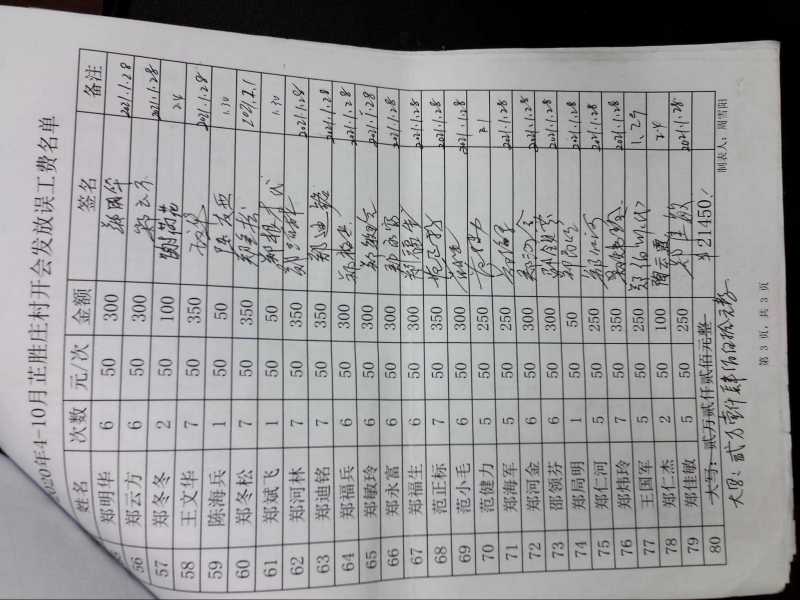 2020年4-10月芷胜庄村开会发放误工费名单
姓名 次数 元/次 金额 签名 备注
郑明华 6 50 300 郑明华 2021.1.28
56 郑云方 6 50 300 郑云方 2021.1.28
57 郑冬冬 2 50 100 2.4
58 王文华 7 50 350 2021.1.28
59 陈海兵 1 50 50 1.30
60 郑冬松 7 50 350 2021.2.1
61 郑斌飞 1 50 50 1.30
62 郑河林 7 50 350 2021.1.28
63 郑迪铭 7 50 350 郑迪铭 2021.1.28
64 郑福兵 6 50 300 2021.1.28
65 郑敏玲 6 50 300 2021.1.28
66 郑永富 6 50 300 2021.1.28
67 郑福生 6 50 300 郑福生 2021.1.28
68 范正标 7 50 350 范正标 2021.1.28
69 范小毛 6 50 300 2021.1.28
70 范健力 5 50 250 2.1
71 郑海军 5 50 250 2021.1.28
72 郑河金 6 50 300 郑河金 2021.1.28
73 邵领芬 6 50 300 2021.1.28
74 郑局明 1 50 50 2021.1.28
75 郑仁河 5 50 250 2021.1.28
76 郑炜玲 7 50 350 2021.1.28
77 王国军 5 50 250 1.29
78 郑仁杰 2 50 100 陶云霞 2.4
79 郑佳敏 5 50 250 郑佳敏 2021.1.28
80 大写：贰万贰仟贰佰元整 ¥21450.
大写：贰万壹仟肆佰伍拾元整
制表人：周雪阳
第 3 页，共 3 页